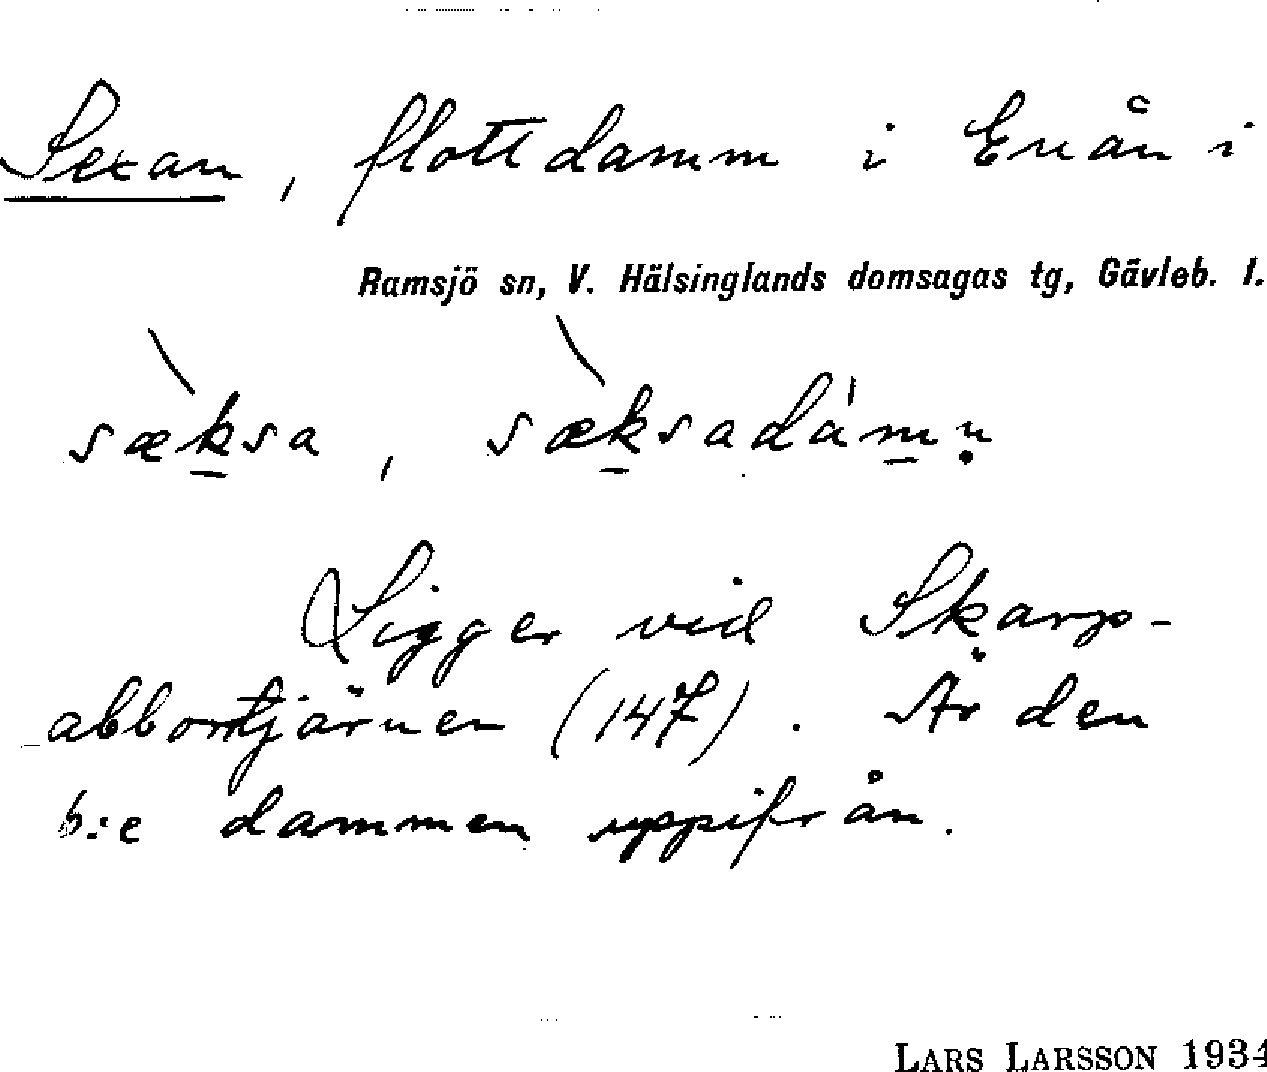 Sexan, flottdamm i Enån i
Ramsjö sn, V. Hälsinglands domsagas tg, Gävleb. l.
sæksa, sæksadámn̥
Ligger vid Skarp-
abborrtjärnen (147). Är den
6:e dammen uppifrån.
LARS LARSSON 1934